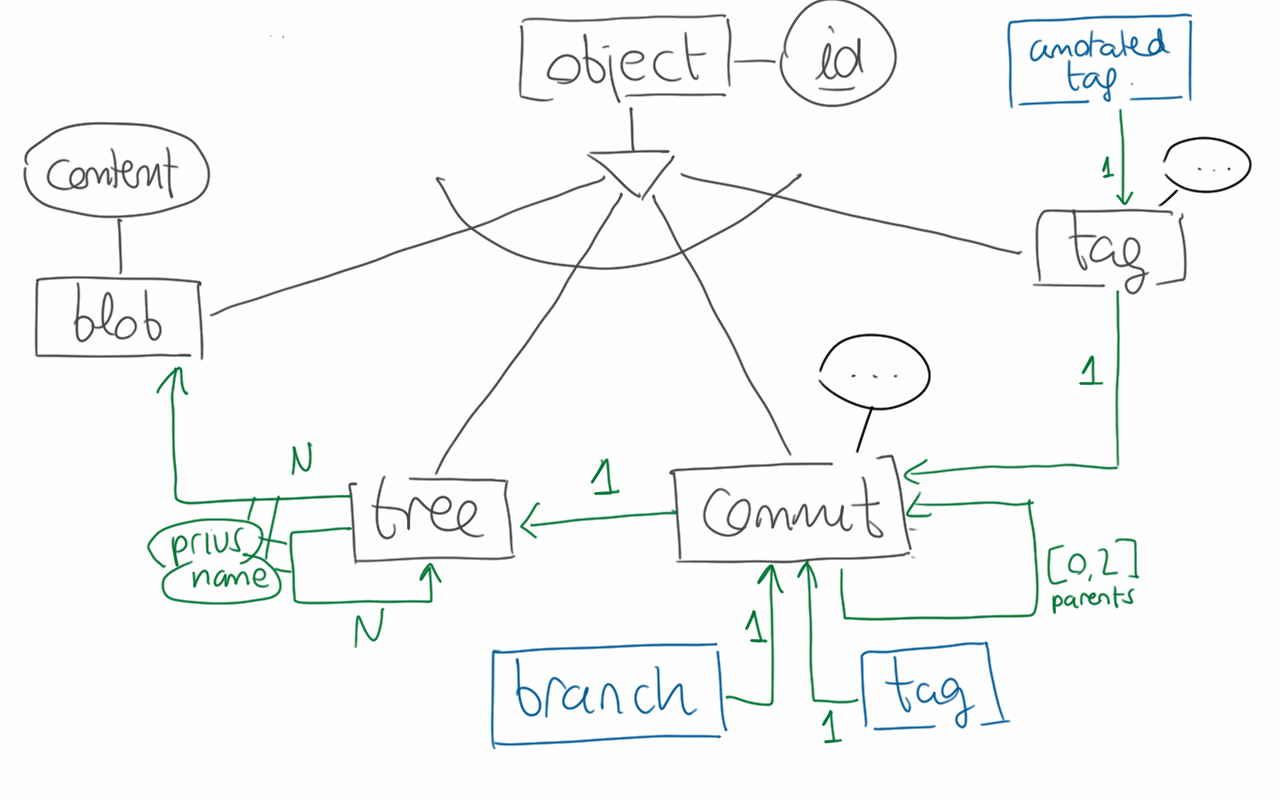 object
id
anotated
tag.
content
...
tag
blob
1
...
1
N
1
tree
commit
prius
name
[0,2]
parents
N
1
branch
tag
1